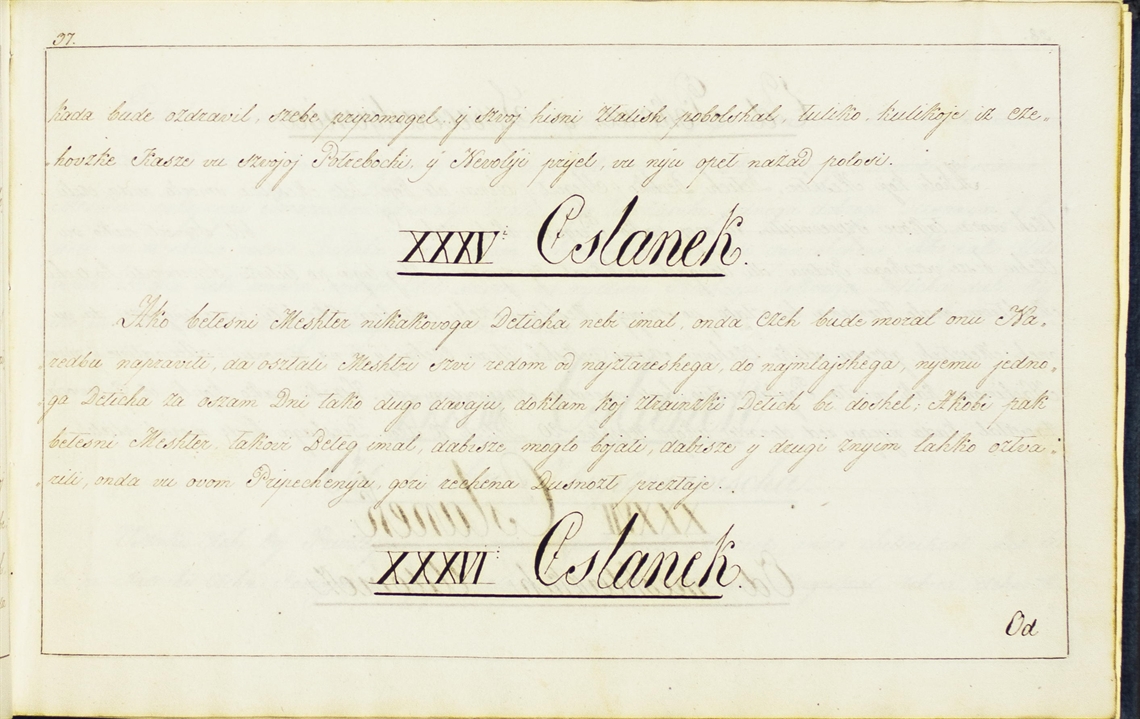 37.
kada bude ozdravil, szebe pripomogel y szvoj hisni Ztalish pobolshal, tuliko, kulikoje iz cze-
hovzke Kasze vu szvojoj Potrebochi, y Nevolyi prijel, vu nyu opet nazad polosi.
XXXV.i Cslanek.
Ako betesni Meshter nikakovoga Deticha nebi imal, onda Czeh bude moral onu Na-
redbu napraviti, da osztali Meshtri szvi redom od najztareshega, do najmlajshega, nyemu jedno-
ga Deticha za oszam Dni tako dugo davaju, doklam koj ztrainzki Detich bi doshel; Akobi pak
betesni Meshter, takov Beteg imal, dabisze moglo bojati, dabisze y drugi znyim lahko oztva-
rili, onda vu ovom Pripechenju, gori rechena Dusnozt preztaje.
XXXVI.i Cslanek.
Od